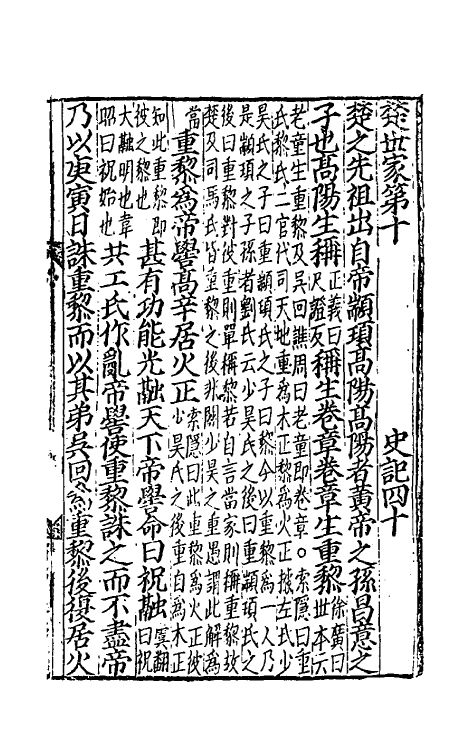 楚世家第十 史記四十
楚之先祖出自帝顓頊高陽高陽者黃帝之孫昌意之
子也高陽生稱正義曰尺證反稱生卷章卷章生重黎徐廣曰世本云
老童生重黎及吳回譙周曰老童即卷章○索隱曰重
氏黎氏二官代司天地重為木正黎為火正據左氏少
昊氏之子曰重顓頊氏之子曰黎今以重黎為一人乃
是顓頊之子孫者劉氏云少昊氏之後曰重顓頊氏之
後曰重黎對彼重則單稱黎若自言當家則稱重黎故
楚及司馬氏皆重黎之後非關少昊之重愚謂此解為
當重黎為帝嚳高辛居火正索隱曰此重黎為火正彼少昊氏之後重自為木正
知此重黎即彼之黎也甚有功能光融天下帝嚳命曰祝融虞翻曰祝
大融明也韋昭曰祝始也共工氏作亂帝嚳使重黎誅之而不盡帝
乃以庚寅日誅重黎而以其弟吳回為重黎後復居火